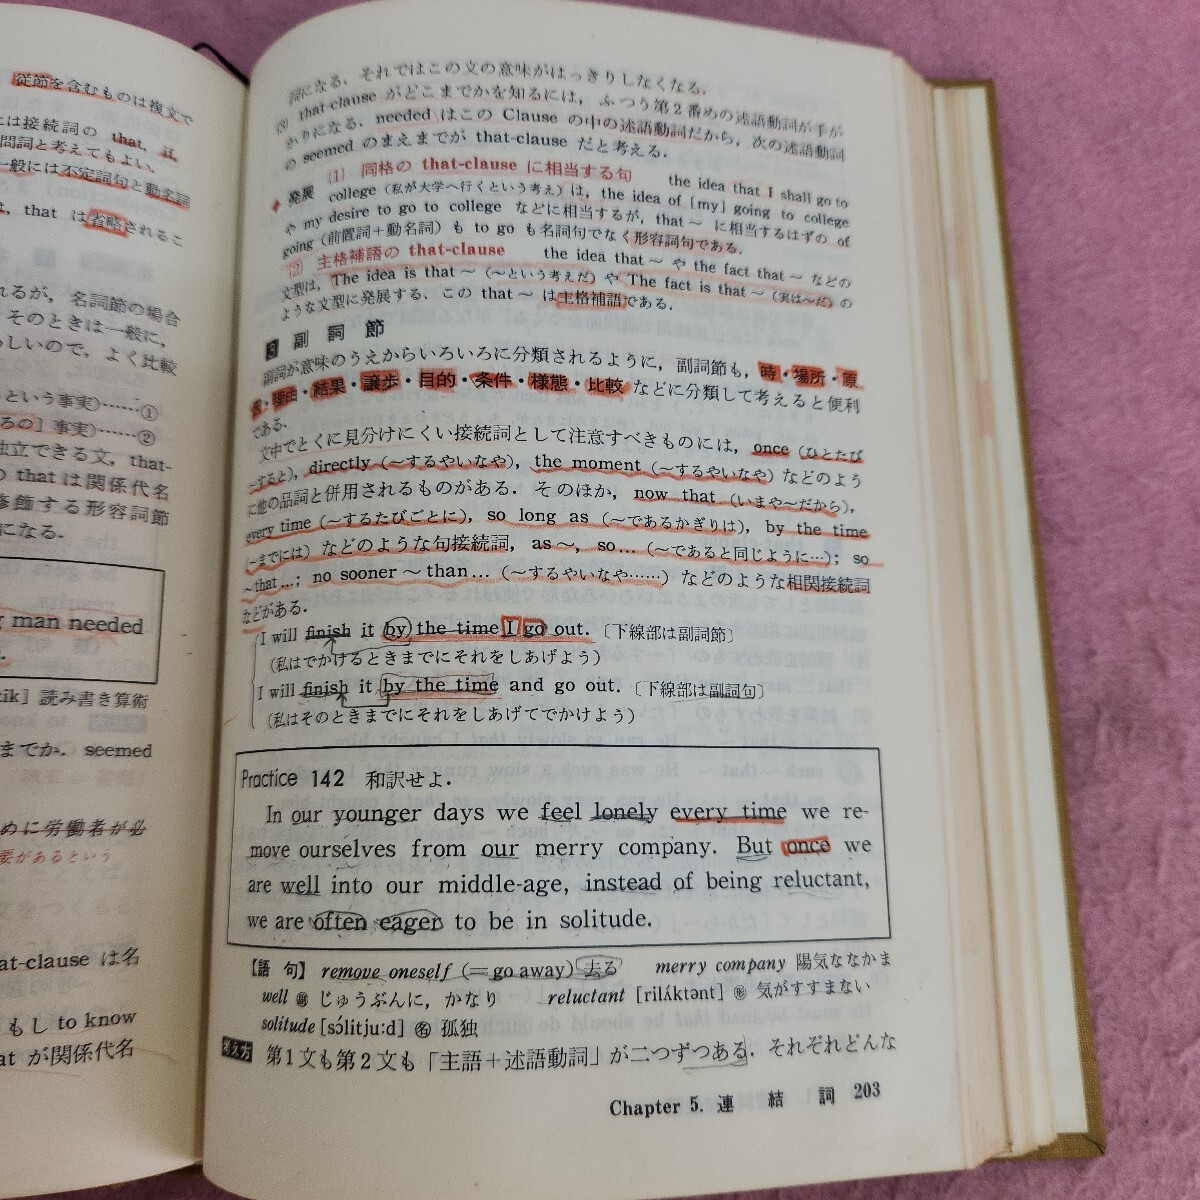 従節を含むものは複文で
には接続詞の that, if
問詞と考えてもよい.
一般には不定詞句と動名詞
は, that は省略されるこ
れるが, 名詞節の場合
そのときは一般に,
らしいので, よく比較
という事実)……①
るの] 事実)……②
独立できる文, that-
の that は関係代名
修飾する形容詞節
になる.
man needed
tik] 読み書き算術
までか. seemed
めに労働者が必
要があるという
at-clause は名
もし to know
at が関係代名
詞になる. それではこの文の意味がはっきりしなくなる.
(3) that-clause がどこまでかを知るには, ふつう第2番めの述語動詞が手が
かりになる. needed はこの Clause の中の述語動詞だから, 次の述語動詞
の seemed のまえまでが that-clause だと考える.
発展 (1) 同格の that-clause に相当する句 the idea that I shall go to
college (私が大学へ行くという考え) は, the idea of [my] going to college
や my desire to go to college などに相当するが, that~ に相当するはずの of
going (前置詞+動名詞) も to go も名詞句でなく形容詞句である.
(2) 主格補語の that-clause the idea that ~ や the fact that ~ などの
文型は, The idea is that ~ (~という考えだ) や The fact is that ~ (実は~だ) の
ような文型に発展する. この that~ は主格補語である.
3 副詞節
副詞が意味のうえからいろいろに分類されるように, 副詞節も, 時・場所・原
因・理由・結果・譲歩・目的・条件・様態・比較 などに分類して考えると便利
である.
文中でとくに見分けにくい接続詞として注意すべきものには, once (ひとたび
~すると), directly (~するやいなや), the moment (~するやいなや) などのよう
に他の品詞と併用されるものがある. そのほか, now that (いまや~だから),
every time (~するたびごとに), so long as (~であるかぎりは), by the time
(~までには) などのような句接続詞, as~, so… (~であると同じように…); so
~that…; no sooner ~ than… (~するやいなや……) などのような相関接続詞
などがある.
I will finish it by the time I go out. 〔下線部は副詞節〕
(私はでかけるときまでにそれをしあげよう)
I will finish it by the time and go out. 〔下線部は副詞句〕
(私はそのときまでにそれをしあげてでかけよう)
Practice 142 和訳せよ.
In our younger days we feel lonely every time we re-
move ourselves from our merry company. But once we
are well into our middle-age, instead of being reluctant,
we are often eager to be in solitude.
【語 句】 remove oneself (=go away) 去る merry company 陽気ななかま
well 副 じゅうぶんに, かなり reluctant [rilʌ́ktənt] 形 気がすすまない
solitude [sɔ́litju:d] 名 孤独
考え方 第1文も第2文も「主語+述語動詞」が二つずつある. それぞれどんな
Chapter 5. 連 結 詞 203